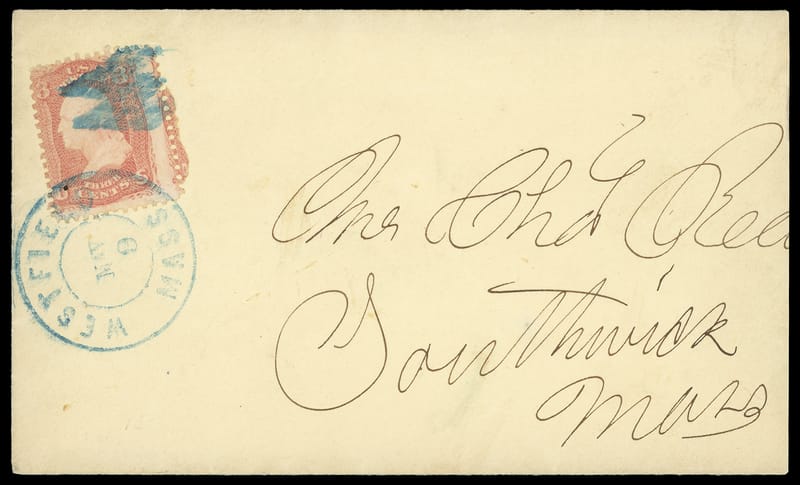 U.S.
3
3
CENTS
WESTFIELD MASS
MAY
6
Mr Chas Ree
Southwick
Mass